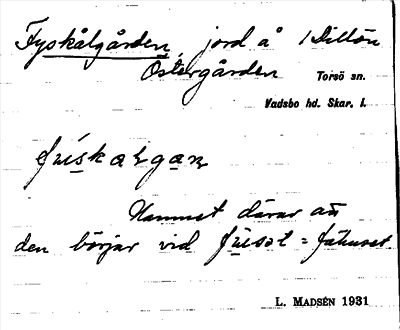 Fyskålgården, jord å 1 Dillön
Östergården Torsö sn.
Vadsbo hd. Skar. l.
Namnet därav att
den börjar vid = fähuset.
L. MADSÉN 1931